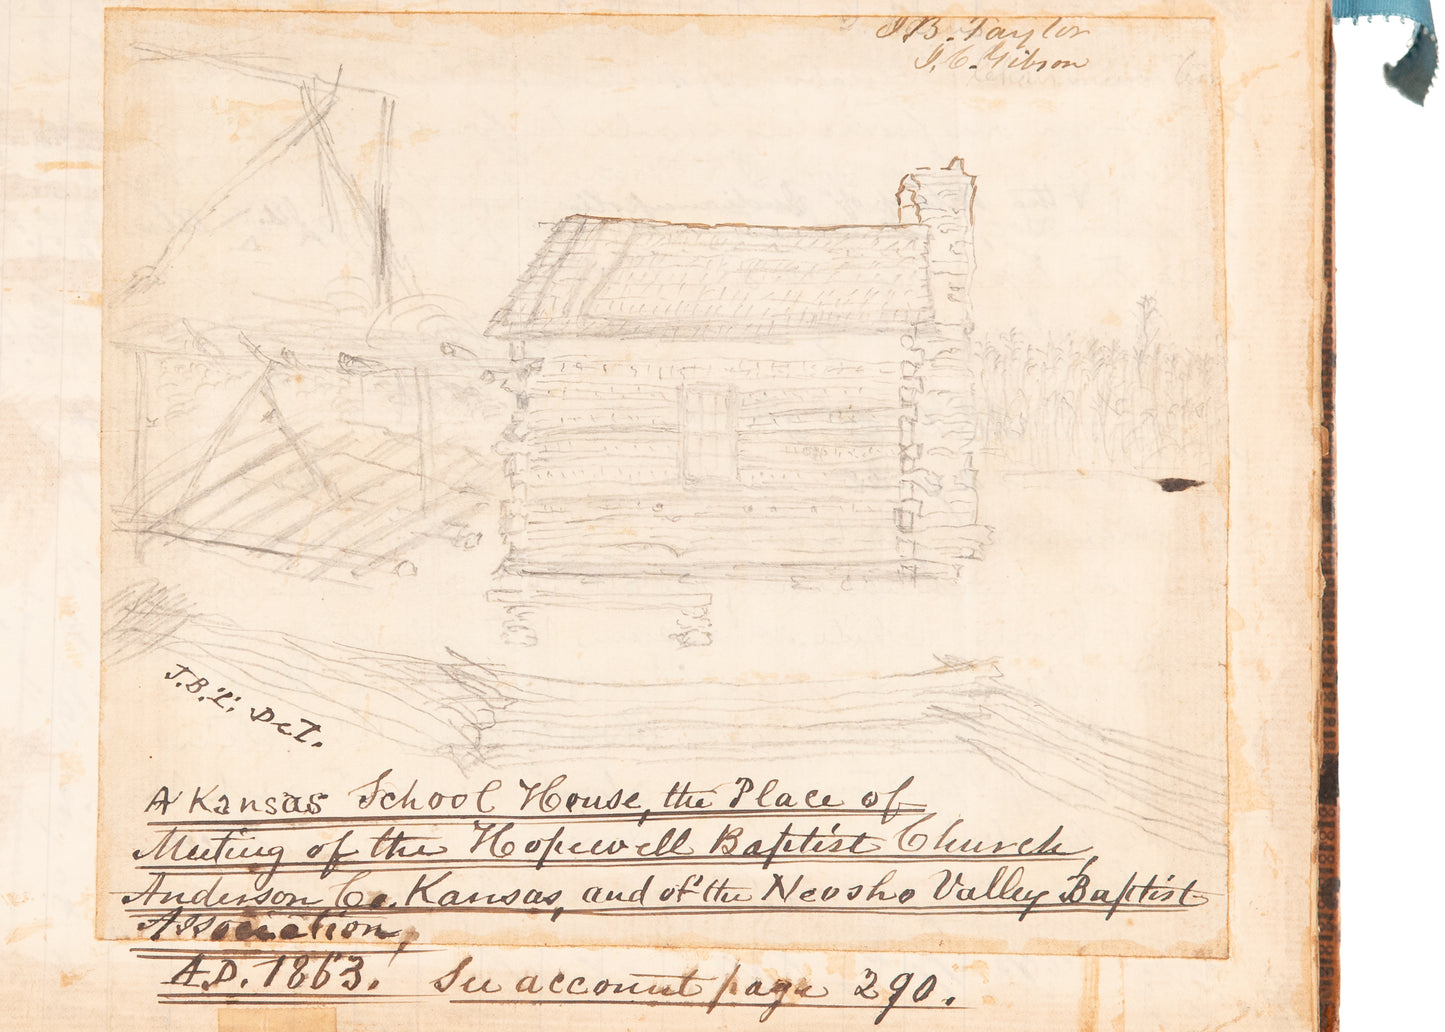 J.B. Taylor
J.C. Gibson
J.B.T. Det.
A Kansas School House, the Place of
Meeting of the Hopewell Baptist Church,
Anderson Co. Kansas, and of the Neosho Valley Baptist
Association,
A.D. 1863. See account page 290.